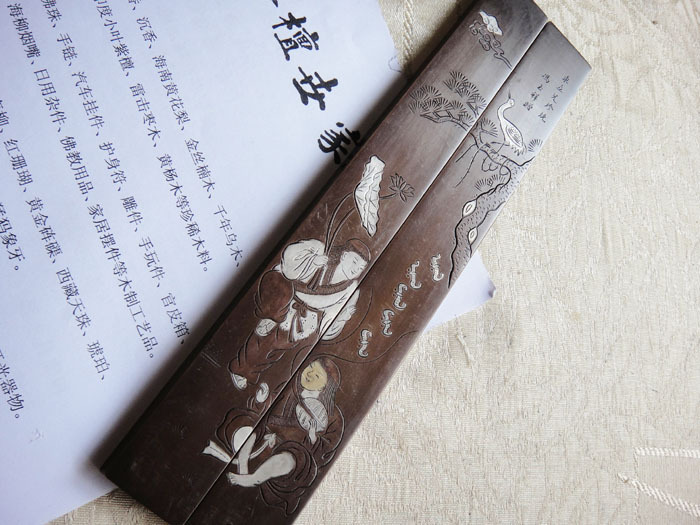 檀世家
、沉香、海南黄花梨、金丝楠木、千年乌木、
度小叶紫檀、雷击枣木、黄杨木等珍稀木料。
佛珠、手链、汽车挂件、护身符、雕件、手玩件、官皮箱、
海柳烟嘴、日用杂件、佛教用品、家居摆件等木制工艺品。
柳、红珊瑚、黄金砗磲、西藏天珠、琥珀、
犸象牙。
器物。